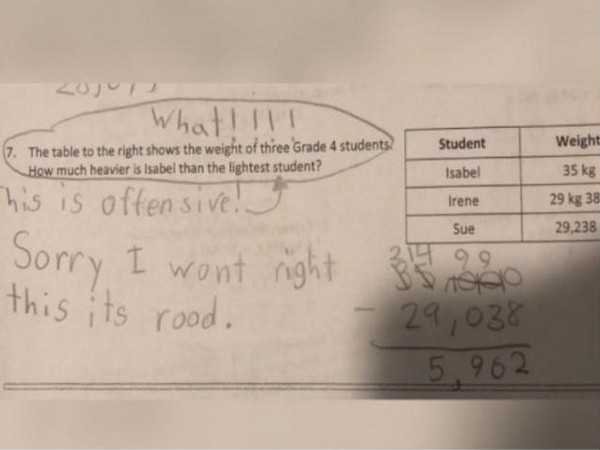 What!!!!
7. The table to the right shows the weight of three Grade 4 students.
How much heavier is Isabel than the lightest student?
This is offensive!
Sorry I wont right
this its rood.
Student Weight
Isabel 35 kg
Irene 29 kg 38
Sue 29,238
3 14 9 9
- 29,038
5,962